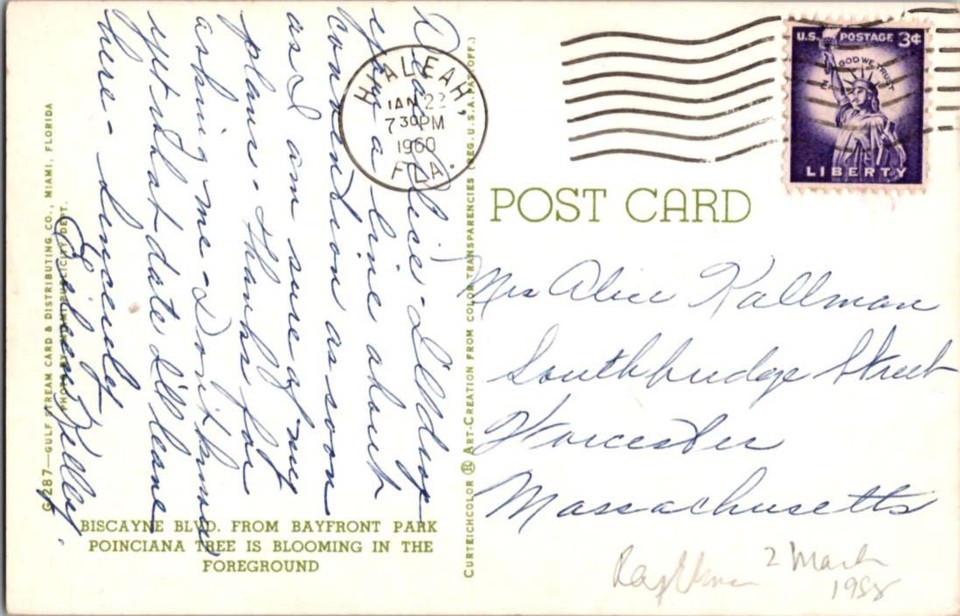 Dear Alice - I'll drop
you a line about
convention as soon
as I am sure of my
plans. Thanks for
asking me - Don't know
yet what date I'll leave
here - Sincerely
Eileen Kelley.
HIALEAH,
JAN 22
7 30 PM
1960
FLA.
U.S. POSTAGE 3¢
IN GOD WE TRUST
LIBERTY
POST CARD
Mrs Alice Kallman
Southbridge Street
Worcester
Massachusetts
2 March
1988
G287—GULF STREAM CARD & DISTRIBUTING CO., MIAMI, FLORIDA
PHOTO BY MIAMI PUBLICITY DEPT.
BISCAYNE BLVD. FROM BAYFRONT PARK
POINCIANA TREE IS BLOOMING IN THE
FOREGROUND
CURTEICHCOLOR ® ART-CREATION FROM COLOR TRANSPARENCIES (REG. U.S.A. PAT. OFF.)